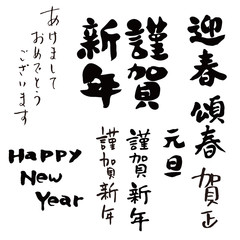 迎春
頌春
賀正
謹賀
新年
元旦
謹賀新年
謹賀新年
あけまして
おめでとう
ございます
Happy
New
Year